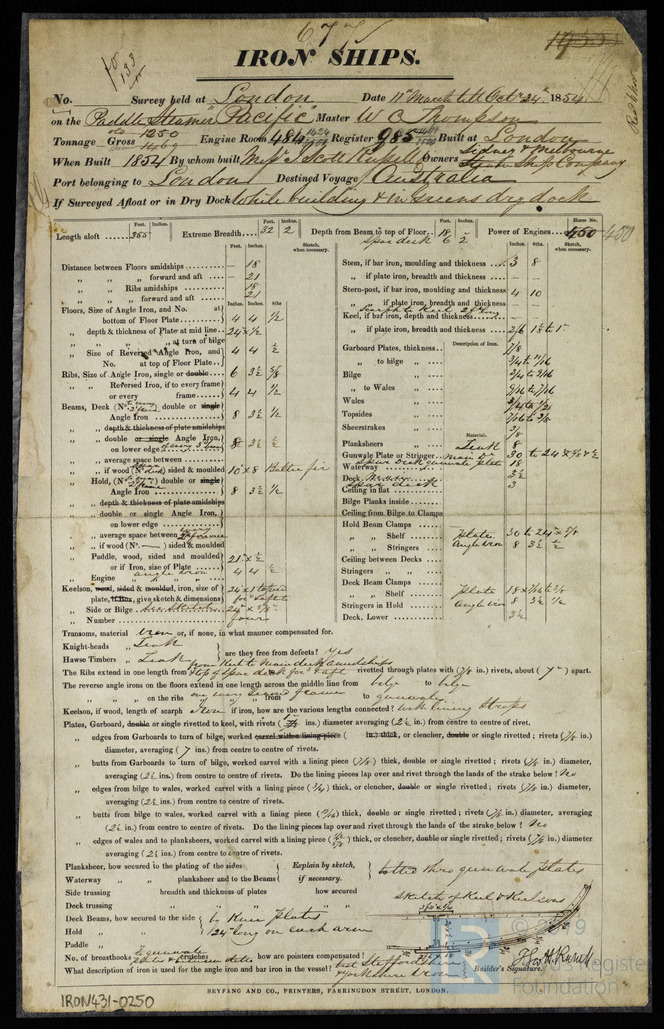 677
IRON SHIPS.
No. Survey held at London Date 11th March till Octr 24th 1854
on the Paddle Steamer "Pacific" Master W C Thompson
Tonnage Gross 1250 Engine Room 486 Register 985 Built at London
When Built 1854 By whom built Messrs J Scott Russell Owners Sidney & Melbourne Steam Ship Company
Port belonging to London Destined Voyage Australia
If Surveyed Afloat or in Dry Dock While building & in dry dock
Feet. Inches. Feet. Inches. Feet. Inches. Horse No.
Length aloft 255 Extreme Breadth 32 2 Depth from Beam to top of Floor 18 Power of Engines 450 400
spar deck 6 2
Feet. Inches. Sketch, when necessary.
Distance between Floors amidships — 18
„ „ „ forward and aft — 21
„ Ribs amidships 18
„ „ forward and aft 21
Inches. Inches. 8ths
Floors, Size of Angle Iron, and No. at bottom of Floor Plate 4 4 1/2
„ depth & thickness of Plate at mid line 24 x 1/2
„ „ „ at turn of bilge
„ Size of Reversed Angle Iron, and No. at top of Floor Plate 4 4 1/2
Ribs, Size of Angle Iron, single or double 6 3½ 5/8
„ Reversed Iron, if to every frame or every frame 4 4 1/2
Beams, Deck (No. ) double or single Angle Iron 8 3½ 1/2
„ „ depth & thickness of plate amidships
„ „ double or single Angle Iron, on lower edge 8 3½ 1/2
„ „ average space between
„ „ if wood (No. ) sided & moulded 10 x 8 Baltic fir
„ Hold, (No. ) double or single Angle Iron 8 3½ 1/2
„ „ depth & thickness of plate amidships
„ „ double or single Angle Iron, on lower edge
„ „ average space between
„ „ if wood (No. — ) sided & moulded
„ Paddle, wood, sided and moulded or if Iron, size of Plate 21 x 1/2
„ Engine „ „ „ angle iron 4 4 1/2
Keelson, wood, sided & moulded, iron, size of plate, if Box, give sketch & dimensions
„ Side or Bilge
„ Number four
Inches. 8ths Sketch, when necessary.
Stem, if bar iron, moulding and thickness 3 8
„ if plate iron, breadth and thickness — —
Stern-post, if bar iron, moulding and thickness 4 10
„ if plate iron, breadth and thickness — —
Keel, if bar iron, depth and thickness — —
„ if plate iron, breadth and thickness
Description of Iron.
Garboard Plates, thickness 7/8
„ to bilge „ 3/4 to 11/16
Bilge „
„ to Wales „
Wales „
Topsides „
Sheerstrakes „
Material.
Planksheers „ Teak 8
Gunwale Plate or Stringer
Waterway „ 18
Deck 3½
Ceiling in flat 3
Bilge Planks inside
Ceiling from Bilge to Clamps
Hold Beam Clamps
„ „ Shelf Plate 30 to 24 x 5/8
„ „ Stringers Angle iron 8 3½ 1/2
Ceiling between Decks
Stringers „ „
Deck Beam Clamps
„ „ Shelf Plate
Stringers in Hold Angle iron 8 3½ 1/2
Deck, Lower 2½
Transoms, material iron or, if none, in what manner compensated for.
Knight-heads „ Teak
Hawse Timbers „ Teak
are they free from defects? Yes
from Keel to Main deck amidships
The Ribs extend in one length from & top of spar deck for & aft rivetted through plates with (7/8 in.) rivets, about ( 7" ) apart.
The reverse angle irons on the floors extend in one length across the middle line from bilge to bilge
„ „ on the ribs on every second frame „ from „ to gunwale
Keelson, if wood, length of scarph Iron if iron, how are the various lengths connected? with lining straps
Plates, Garboard, double or single rivetted to keel, with rivets ( 1 ins.) diameter averaging (2½ in.) from centre to centre of rivet.
„ edges from Garboards to turn of bilge, worked carvel with a lining piece ( in.) thick, or clencher, double or single rivetted; rivets (7/8 in.) diameter, averaging ( 7 ins.) from centre to centre of rivets.
„ butts from Garboards to turn of bilge, worked carvel with a lining piece (7/8) thick, double or single rivetted; rivets (7/8 in.) diameter, averaging (2½ ins.) from centre to centre of rivets. Do the lining pieces lap over and rivet through the lands of the strake below? No
„ edges from bilge to wales, worked carvel with a lining piece (3/4) thick, or clencher, double or single rivetted; rivets (7/8 in.) diameter, averaging (2½ ins.) from centre to centre of rivets.
„ butts from bilge to wales, worked carvel with a lining piece (11/16) thick, double or single rivetted; rivets (7/8 in.) diameter, averaging (2½ in.) from centre to centre of rivets. Do the lining pieces lap over and rivet through the lands of the strake below? No
„ edges of wales and to planksheers, worked carvel with a lining piece ( ) thick, or clencher, double or single rivetted; rivets (7/8 in.) diameter averaging (2½ ins.) from centre to centre of rivets.
Planksheer, how secured to the plating of the sides
Waterway „ „ planksheer and to the Beams
Explain by sketch, if necessary.
bolted thro gunwale plates
Side trussing breadth and thickness of plates how secured
Sketch of Keel & Keelsons
Deck trussing „ „ „ „
Deck Beams, how secured to the side by Knee plates
Hold „ „ 24" long on each arm
Paddle „ „
No. of breasthooks crutches how are pointers compensated?
What description of iron is used for the angle iron and bar iron in the vessel? best Staffordshire & Yorkshire iron
Builder's Signature.
SEYFANG AND CO., PRINTERS, FARRINGDON STREET, LONDON.
IRON431-0250
© 2019
Lloyd's Register
Foundation